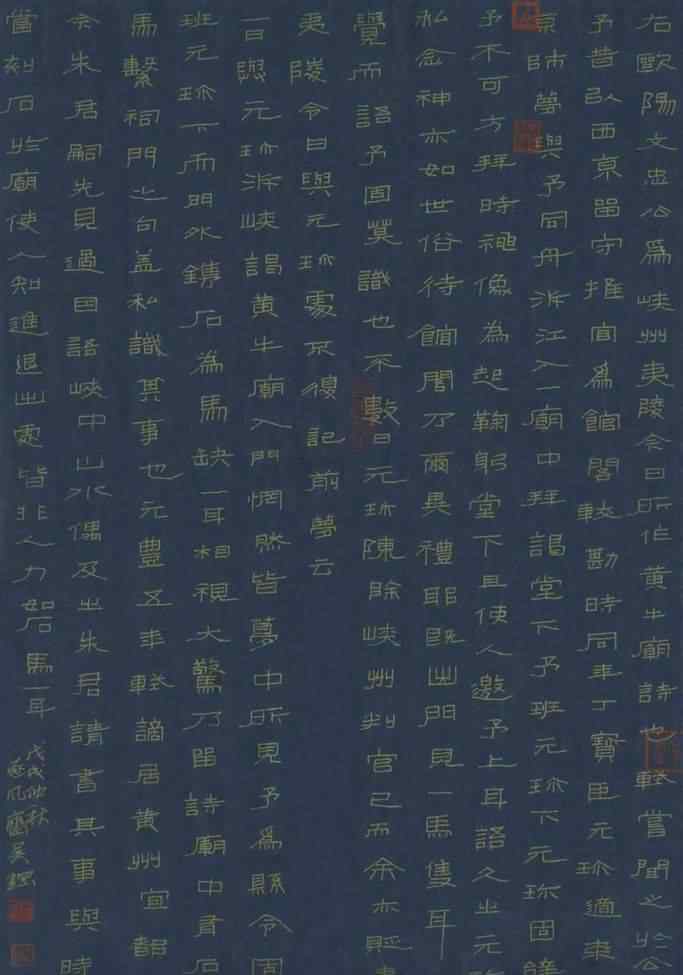 右歐陽文忠公為峽州夷陵令日所作黃牛廟詩也軾嘗聞之於公
予昔以西京留守推官為館閣較勘時同年丁寶臣元珍適來
京師夢與予同舟泝江入一廟中拜謁堂下予班元珍下元珍固辭
予不可方拜時神像為起鞠躬堂下且使人邀予上耳語久之元珍
私念神亦如世俗待館閣乃爾異禮耶既出門見一馬隻耳
覺而語予固莫識也不數日元珍除峽州判官已而余亦貶
夷陵令日與元珍處不復記前夢云
一日與元珍泝峽謁黃牛廟入門惘然皆夢中所見予為縣令固
班元珍下而門外鐫石為馬缺一耳相視大驚乃留詩廟中有石
馬繫祠門之句盖私識其事也元豐五年軾謫居黃州宜都
令朱君嗣先見過因語峽中山水偶及之朱君請書其事與詩
當刻石於廟使人知進退出處皆非人力如石馬一耳
戊戌仲秋